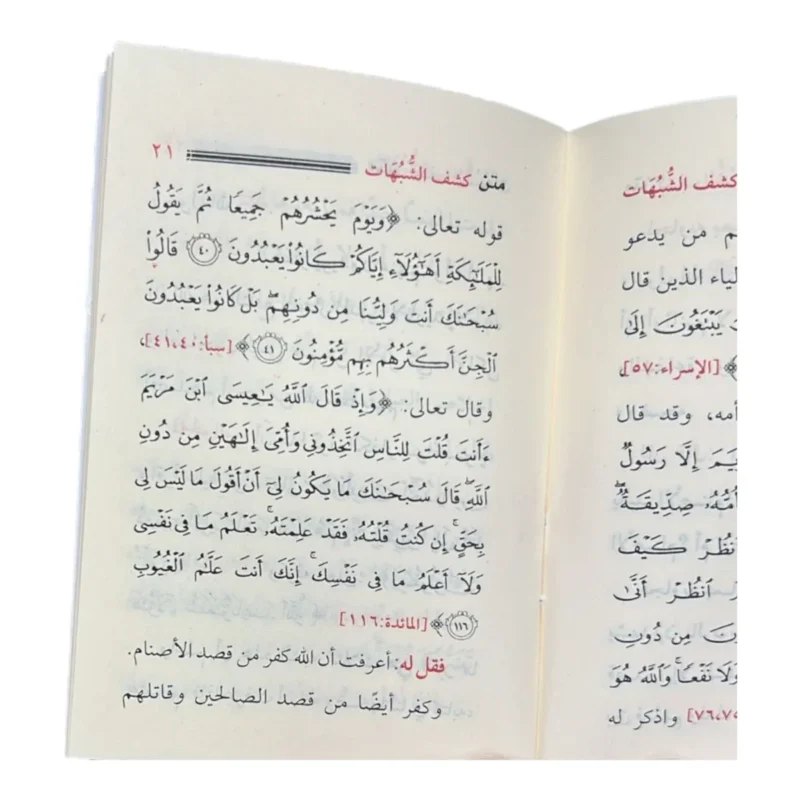 كشف الشُّبُهَات
م من يدعو
لياء الذين قال
يَبْتَغُونَ إِلَىٰ
﴾ [الإسراء:٥٧]،
أمه، وقد قال
إِلَّا رَسُولٌ
أُمُّهُۥ صِدِّيقَةٌۖ
ٱنظُرْ كَيْفَ
ٱنظُرْ أَنَّىٰ
نَ مِن دُونِ
وَلَا نَفْعًاۚ وَٱللَّهُ هُوَ
٧٦،٧٥] واذكر له
متن كشف الشُّبُهَات ٢١
قوله تعالى: ﴿وَيَوْمَ يَحْشُرُهُمْ جَمِيعًا ثُمَّ يَقُولُ
لِلْمَلَٰٓئِكَةِ أَهَٰٓؤُلَآءِ إِيَّاكُمْ كَانُوا۟ يَعْبُدُونَ ٤٠ قَالُوا۟
سُبْحَٰنَكَ أَنتَ وَلِيُّنَا مِن دُونِهِمۖ بَلْ كَانُوا۟ يَعْبُدُونَ
ٱلْجِنَّۖ أَكْثَرُهُم بِهِم مُّؤْمِنُونَ ٤١﴾ [سبأ:٤١،٤٠]،
وقال تعالى: ﴿وَإِذْ قَالَ ٱللَّهُ يَٰعِيسَى ٱبْنَ مَرْيَمَ
ءَأَنتَ قُلْتَ لِلنَّاسِ ٱتَّخِذُونِى وَأُمِّىَ إِلَٰهَيْنِ مِن دُونِ
ٱللَّهِۖ قَالَ سُبْحَٰنَكَ مَا يَكُونُ لِىٓ أَنْ أَقُولَ مَا لَيْسَ لِى
بِحَقٍّۚ إِن كُنتُ قُلْتُهُۥ فَقَدْ عَلِمْتَهُۥۚ تَعْلَمُ مَا فِى نَفْسِى
وَلَآ أَعْلَمُ مَا فِى نَفْسِكَۚ إِنَّكَ أَنتَ عَلَّٰمُ ٱلْغُيُوبِ
١١٦﴾ [المائدة:١١٦]
فقل له: أعرفت أن الله كفر من قصد الأصنام.
وكفر أيضًا من قصد الصالحين وقاتلهم